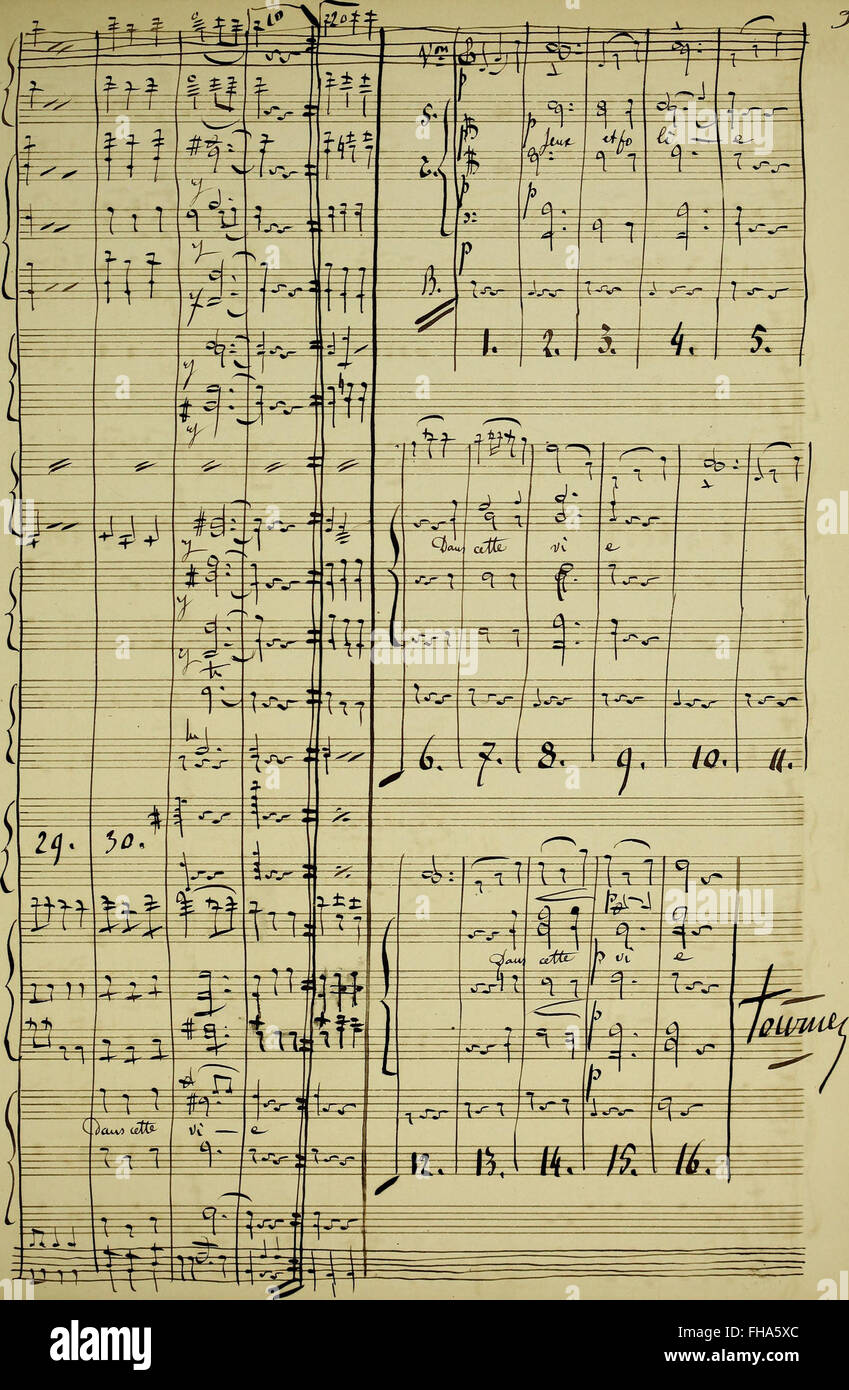 3
10
Von
S.
T.
B.
p
p
p
p
p
p
p
Jeux et fo li — e
1. 2. 3. 4. 5.
Dans cette vi e
6. 7. 8. 9. 10. 11.
29. 30.
tr
Dans cette vi e
p
p
p
12. 13. 14. 15. 16.
Tournez
Dans cette vi — e
alamy stock photo
FHA5XC
www.alamy.com